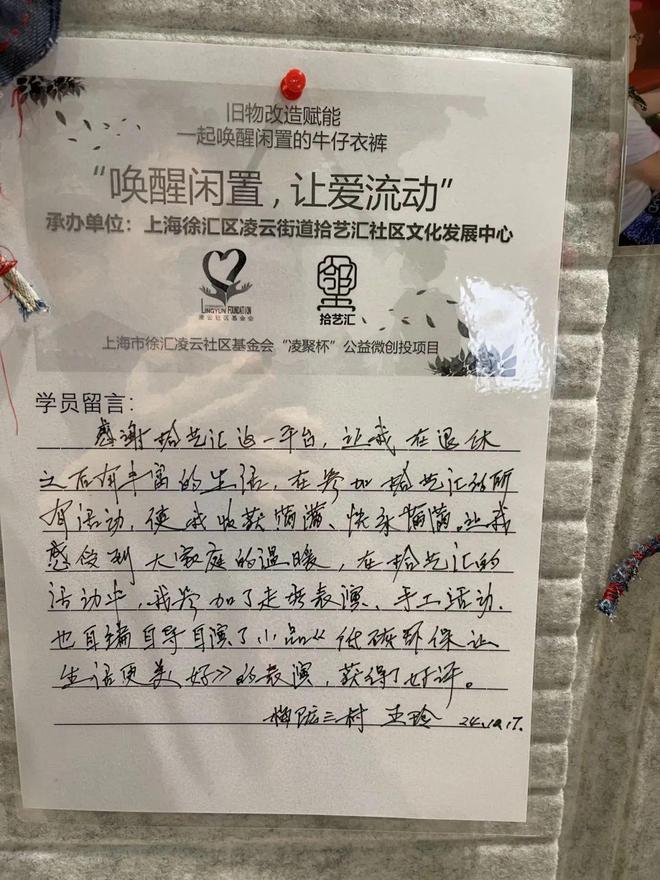 旧物改造赋能
一起唤醒闲置的牛仔衣裤
“唤醒闲置，让爱流动”
承办单位：上海徐汇区凌云街道拾艺汇社区文化发展中心
LINGYUN FOUNDATION
凌云社区基金会
拾艺汇
上海市徐汇凌云社区基金会“凌聚杯”公益微创投项目
学员留言：
感谢拾艺汇这一平台，让我在退休
之后有丰富的生活，在参加拾艺汇的所
有活动，使我收获满满、快乐满满。让我
感受到大家庭的温暖，在拾艺汇的
活动中，我参加了走秀表演、手工活动.
也自编自导自演了小品《低碳环保让
生活更美好》的表演，获得了好评。
梅陇三村 王玲 24.10.17.